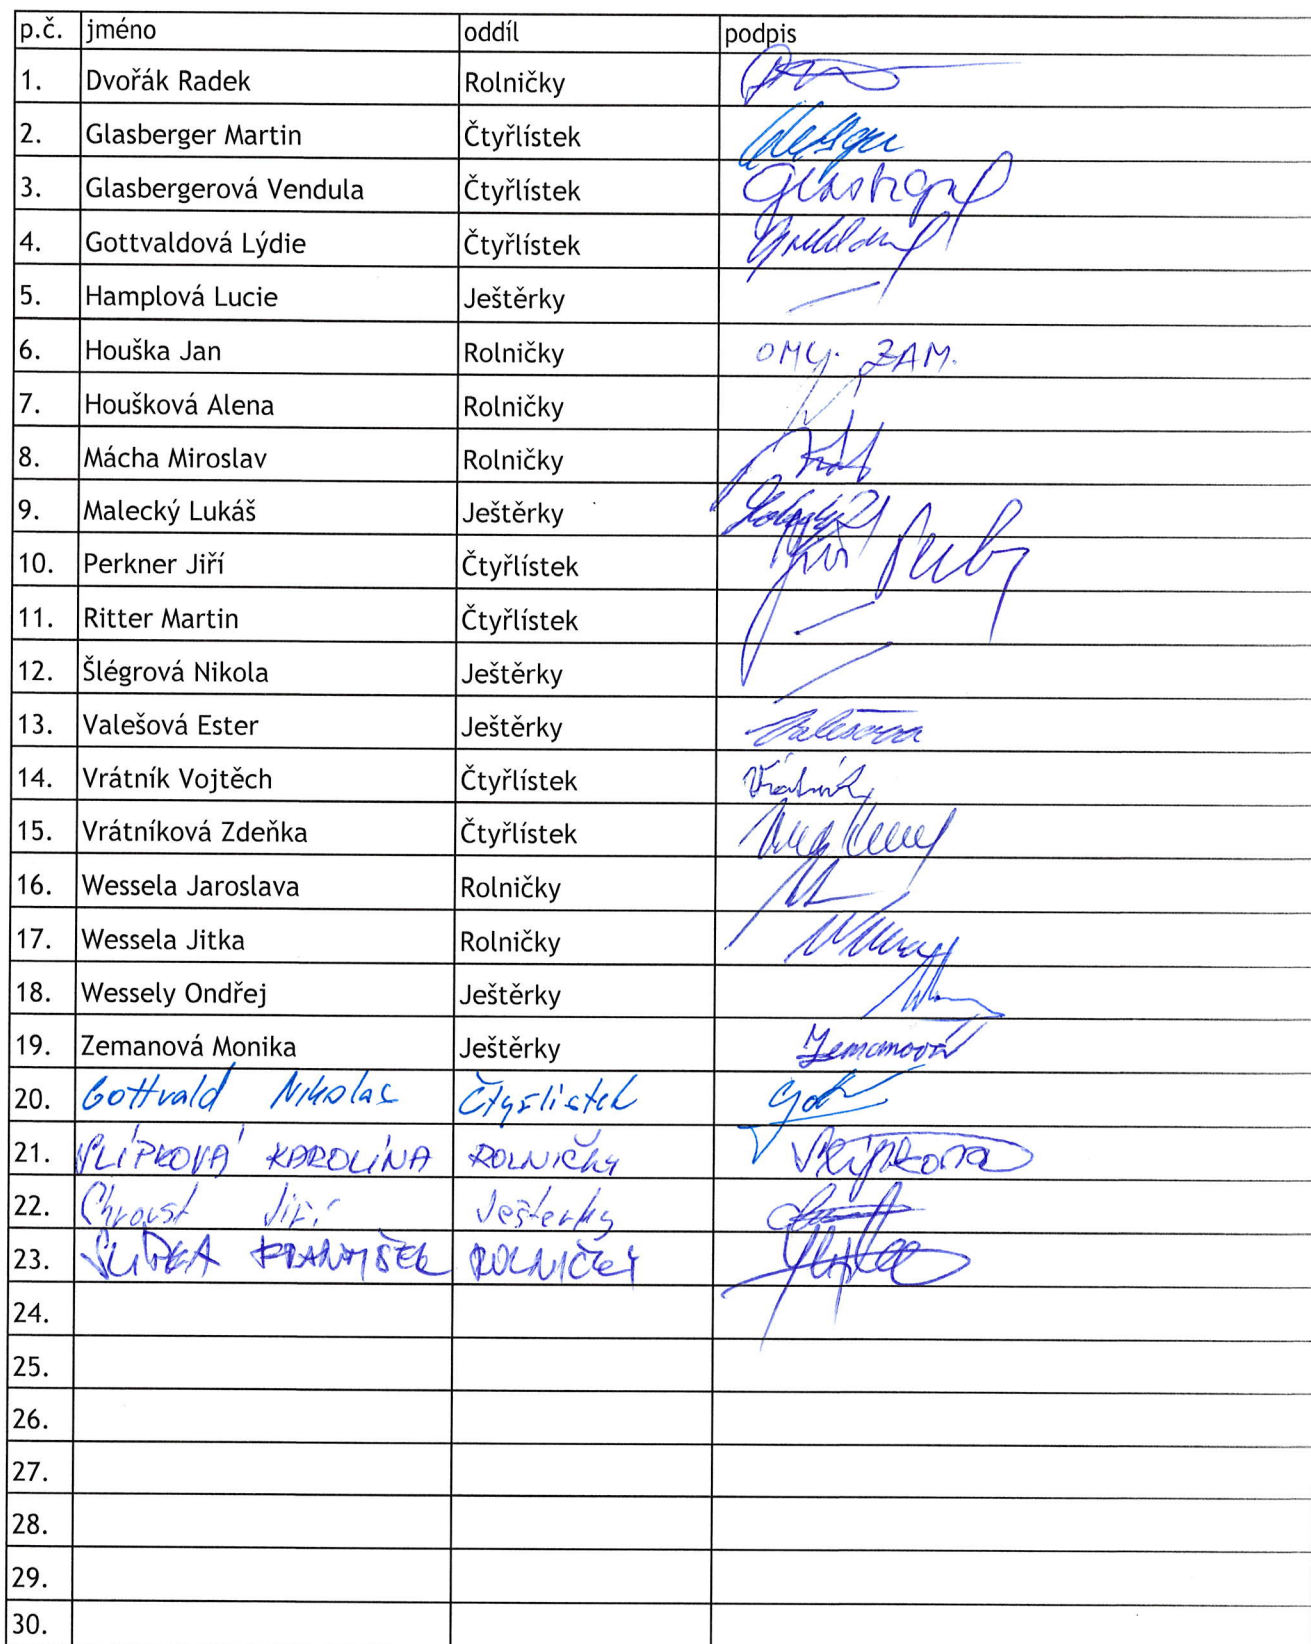 p.č. jméno oddíl podpis
1. Dvořák Radek Rolničky
2. Glasberger Martin Čtyřlístek
3. Glasbergerová Vendula Čtyřlístek
4. Gottvaldová Lýdie Čtyřlístek
5. Hamplová Lucie Ještěrky —
6. Houška Jan Rolničky ZAM.
7. Houšková Alena Rolničky
8. Mácha Miroslav Rolničky
9. Malecký Lukáš Ještěrky
10. Perkner Jiří Čtyřlístek
11. Ritter Martin Čtyřlístek —
12. Šlégrová Nikola Ještěrky —
13. Valešová Ester Ještěrky Valešova
14. Vrátník Vojtěch Čtyřlístek Vrátník
15. Vrátníková Zdeňka Čtyřlístek
16. Wessela Jaroslava Rolničky
17. Wessela Jitka Rolničky
18. Wessely Ondřej Ještěrky
19. Zemanová Monika Ještěrky Zemanová
20. Gottvald Nikolas Čtyřlístek
21. KAROLÍNA ROLNIČKY
22. Chroust Jiří Ještěrky
23. FRANTIŠEK ROLNIČKY
24.
25.
26.
27.
28.
29.
30.